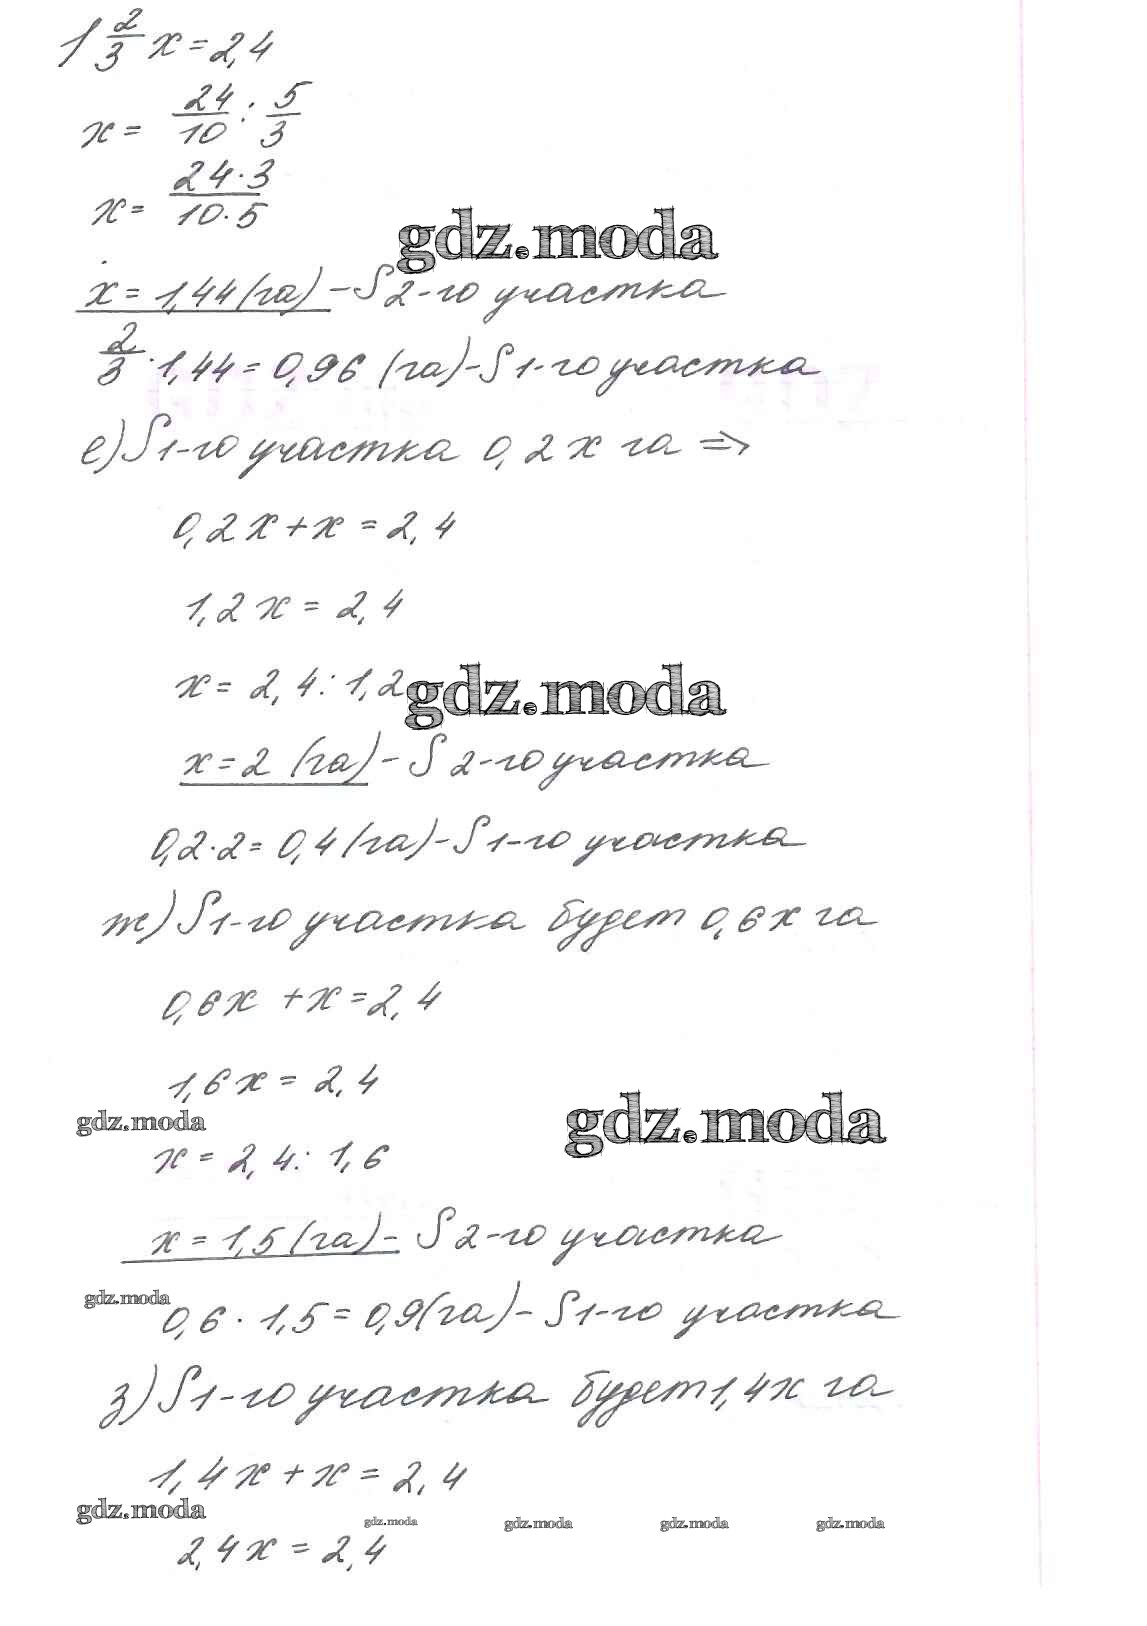 1 2/3 x = 2,4
x = 24/10 : 5/3
x = 24·3/10·5
gdz.moda
x = 1,44 (га) - S 2-го участка
2/3 · 1,44 = 0,96 (га) - S 1-го участка
е) S 1-го участка 0,2x га ⇒
0,2x + x = 2,4
1,2x = 2,4
x = 2,4 : 1,2
gdz.moda
x = 2 (га) - S 2-го участка
0,2 · 2 = 0,4 (га) - S 1-го участка
ж) S 1-го участка будет 0,6x га
0,6x + x = 2,4
1,6x = 2,4
gdz.moda
gdz.moda
x = 2,4 : 1,6
x = 1,5 (га) - S 2-го участка
gdz.moda
0,6 · 1,5 = 0,9 (га) - S 1-го участка
з) S 1-го участка будет 1,4x га
1,4x + x = 2,4
gdz.moda
gdz.moda gdz.moda gdz.moda gdz.moda
2,4x = 2,4